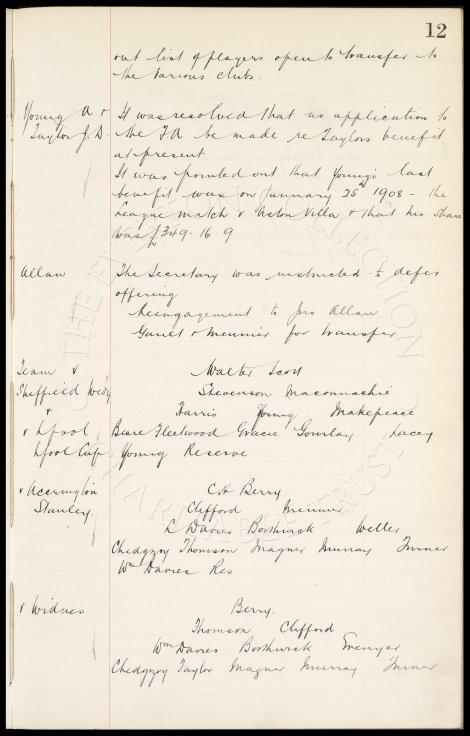 12
out list of players open to transfer to
the various clubs.
Young A &
Taylor J.D.
It was resolved that no application to
the FA be made re Taylors benefit
at present
It was pointed out that Young's last
benefit was on January 25th 1908 - the
League match v Aston Villa & that his share
was £349.16.9
Allan
The Secretary was instructed to defer
offering
Reengagement to Jno Allan
Gault & Meunier for transfer
Team v
Sheffield Wedy
&
v Lpool
Lpool Cup
Walter Scott
Stevenson Maconnachie
Harris Young Makepeace
Beare Fleetwood Gracie Gourlay Lacey
Young Reserve
v Accrington
Stanley
CA Berry
Clifford Meunier
L Davies Borthwick Weller
Chedgzoy Thomson Magner Murray Turner
Wm Davies Res
v Widnes
Berry.
Thomson Clifford
Wm Davies Borthwick Grenyer
Chedgzoy Taylor Magner Murray Turner
THE EVERTON COLLECTION
CHARITABLE TRUST